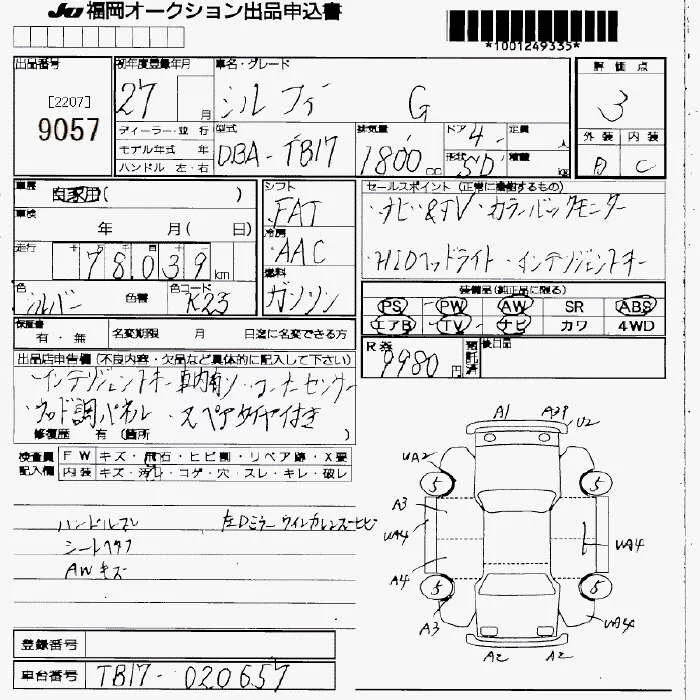 JU 福岡オークション出品申込書
*1001249335*
出品番号 [2207] 9057
初年度登録年月 27 月
車名・グレード シルフィ G
評価点 3
外装 内装 C
ディーラー・並行
モデル年式 年
ハンドル 左・右
型式 DBA-TB17
排気量 1800 cc
ドア 4
形状 SD
定員 人
積量 kg
車歴 自家用( )
車検 年 月( 日)
走行 十万 万 千 百 十 一 78,039 km
色 シルバー 色替 色コード K23
シフト FAT
冷房 AAC
燃料 ガソリン
セールスポイント (正常に機能するもの)
・ナビ&TV・カラーバックモニター
・HIDヘッドライト・インテリジェントキー
装備品(純正品に限る)
PS PW AW SR ABS
エアB TV ナビ カワ 4WD
保証書 有・無 名変期限 月 日迄に名変できる方
R券 9980円 預託済 後日品
出品店申告欄 (不良内容・欠品など具体的に記入して下さい)
・インテリジェントキー車内有り・コーナーセンサー
・ウッド調パネル ・スペアタイヤ付き
修復歴 有 (箇所
検査員記入欄
FW キズ・飛石・ヒビ割・リペア跡・X要
内装 キズ・汚レ・コゲ・穴・スレ・キレ・破レ
ハンドルスレ 左Dミラーウインカーレンズヒビ
シートヘタリ
AWキズ
A1 A2P U2
UA2 5 5
A3
UA4 UA4
A4
5 5
A3 UA4
A2 A2
登録番号
車台番号 TB17-020657